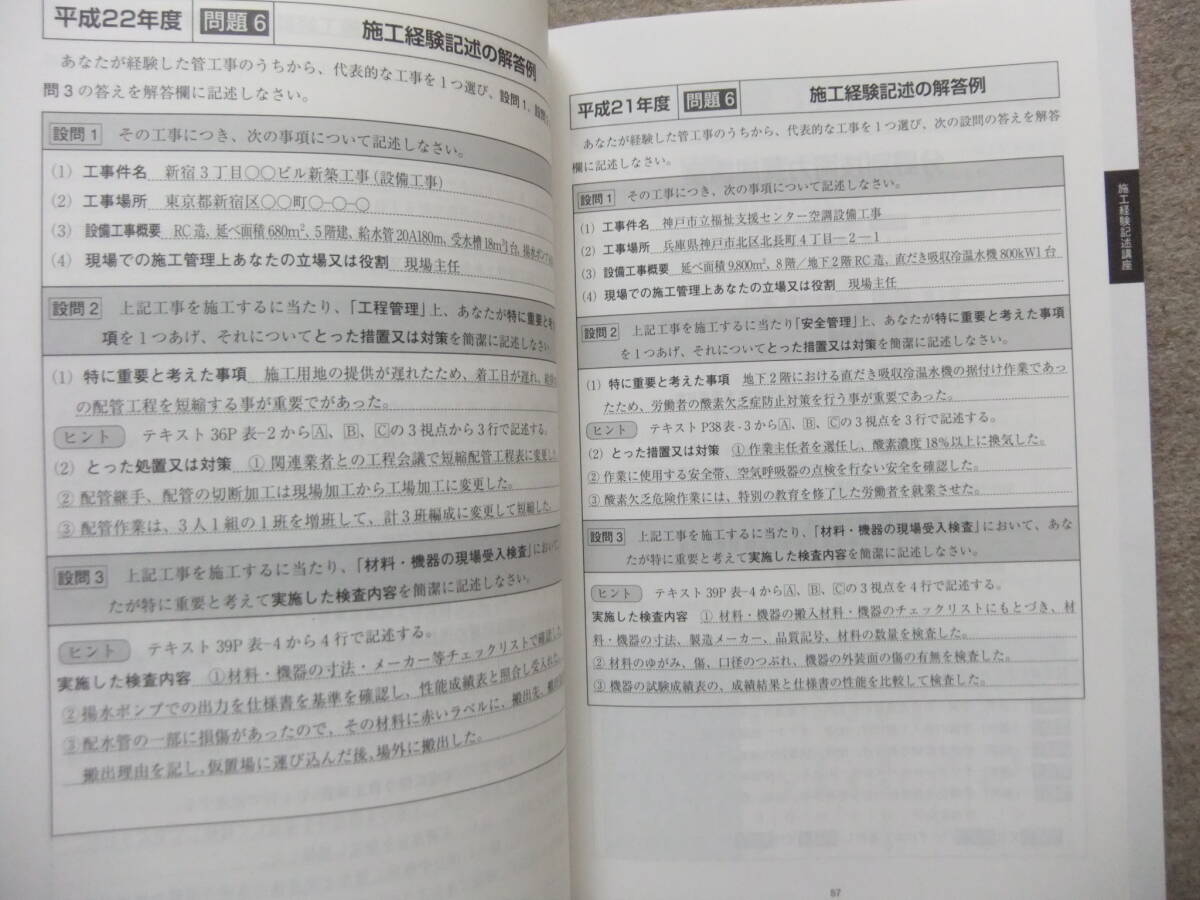 平成22年度 問題6 施工経験記述の解答例
あなたが経験した管工事のうちから、代表的な工事を1つ選び、設問1、設問
問3の答えを解答欄に記述しなさい。
設問1 その工事につき、次の事項について記述しなさい。
(1) 工事件名 新宿3丁目○○ビル新築工事(設備工事)
(2) 工事場所 東京都新宿区○○町○-○-○
(3) 設備工事概要 RC造、延べ面積680m²、5階建、給水管20A180m、受水槽18m³1台、揚水ポンプ
(4) 現場での施工管理上あなたの立場又は役割 現場主任
設問2 上記工事を施工するに当たり、「工程管理」上、あなたが特に重要と考え
項を1つあげ、それについてとった措置又は対策を簡潔に記述しなさい
(1) 特に重要と考えた事項 施工用地の提供が遅れたため、着工日が遅れ、
の配管工程を短縮する事が重要でがあった。
ヒント テキスト36P 表-2からA、B、Cの3視点から3行で記述する。
(2) とった処置又は対策 ① 関連業者との工程会議で短縮配管工程表に変更した
② 配管継手、配管の切断加工は現場加工から工場加工に変更した。
③ 配管作業は、3人1組の1班を増班して、計3班編成に変更して短縮した。
設問3 上記工事を施工するに当たり、「材料・機器の現場受入検査」において、
たが特に重要と考えて実施した検査内容を簡潔に記述しなさい。
ヒント テキスト39P 表-4から4行で記述する。
実施した検査内容 ①材料・機器の寸法・メーカー等チェックリストで確認した
②揚水ポンプでの出力を仕様書を基準を確認し、性能成績表と照合し受入れた。
③配水管の一部に損傷があったので、その材料に赤いラベルに、搬出先、
搬出理由を記し、仮置場に運び込んだ後、場外に搬出した。
平成21年度 問題6 施工経験記述の解答例
あなたが経験した管工事のうちから、代表的な工事を1つ選び、次の設問の答えを解答
欄に記述しなさい。
設問1 その工事につき、次の事項について記述しなさい。
(1) 工事件名 神戸市立福祉支援センター空調設備工事
(2) 工事場所 兵庫県神戸市北区北長町4丁目―2―1
(3) 設備工事概要 延べ面積9,800m²、8階/地下2階RC造、直だき吸収冷温水機800kW1台
(4) 現場での施工管理上あなたの立場又は役割 現場主任
設問2 上記工事を施工するに当たり「安全管理」上、あなたが特に重要と考えた事項
を1つあげ、それについてとった措置又は対策を簡潔に記述しなさい。
(1) 特に重要と考えた事項 地下2階における直だき吸収冷温水機の据付け作業であっ
たため、労働者の酸素欠乏症防止対策を行う事が重要であった。
ヒント テキストP38表-3からA、B、Cの3視点を3行で記述する。
(2) とった措置又は対策 ① 作業主任者を選任し、酸素濃度18%以上に換気した。
② 作業に使用する安全帯、空気呼吸器の点検を行ない安全を確認した。
③ 酸素欠乏危険作業には、特別の教育を修了した労働者を就業させた。
設問3 上記工事を施工するに当たり、「材料・機器の現場受入検査」において、あな
たが特に重要と考えて実施した検査内容を簡潔に記述しなさい。
ヒント テキスト39P 表-4からA、B、Cの3視点を4行で記述する。
実施した検査内容 ① 材料・機器の搬入材料・機器のチェックリストにもとづき、材
料・機器の寸法、製造メーカー、品質記号、材料の数量を検査した。
② 材料のゆがみ、傷、口径のつぶれ、機器の外装面の傷の有無を検査した。
③ 機器の試験成績表の、成績結果と仕様書の性能を比較して検査した。
施工経験記述講座
57